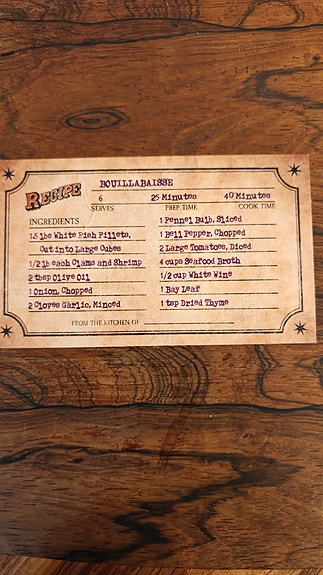 RECIPE
BOUILLABAISSE
6 25 Minutes 40 Minutes
SERVES PREP TIME COOK TIME
INGREDIENTS
1.5 lbs White Fish Fillets,
Cut into Large Cubes
1/2 lb each Clams and Shrimp
2 tbsp Olive Oil
1 Onion, Chopped
2 Cloves Garlic, Minced
1 Fennel Bulb, Sliced
1 Bell Pepper, Chopped
2 Large Tomatoes, Diced
4 cups Seafood Broth
1/2 cup White Wine
1 Bay Leaf
1 tsp Dried Thyme
FROM THE KITCHEN OF